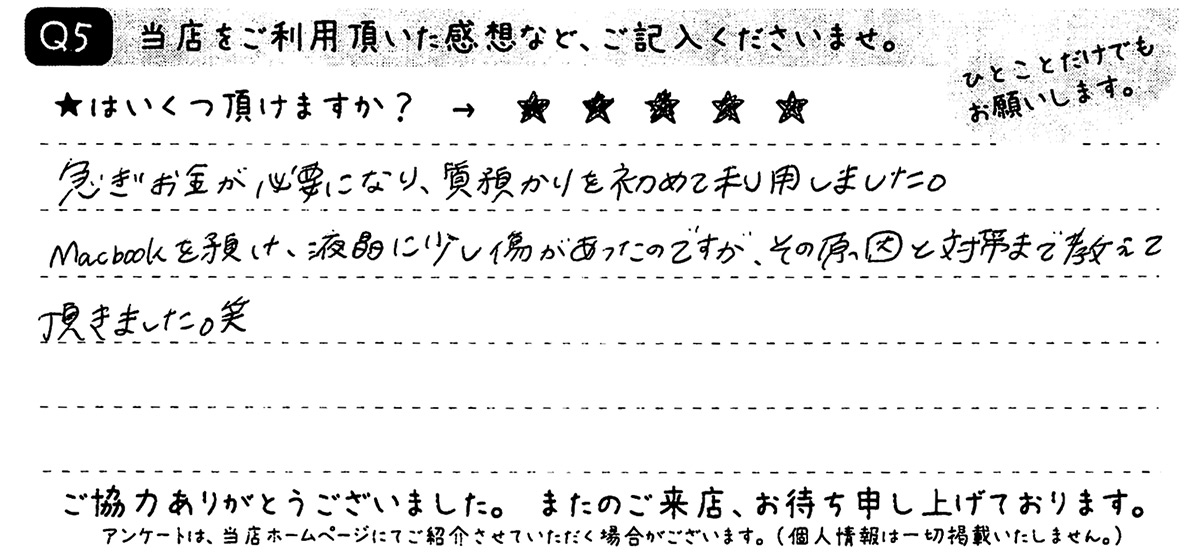 Q5 当店をご利用頂いた感想など、ご記入くださいませ。
ひとことだけでも
お願いします。
★はいくつ頂けますか? → ★ ★ ★ ★ ★
急ぎお金が必要になり、質預かりを初めて利用しました。
Macbookを預け、液晶に少し傷があったのですが、その原因と対帯まで教えて
頂きました。笑
ご協力ありがとうございました。 またのご来店、お待ち申し上げております。
アンケートは、当店ホームページにてご紹介させていただく場合がございます。(個人情報は一切掲載いたしません。)